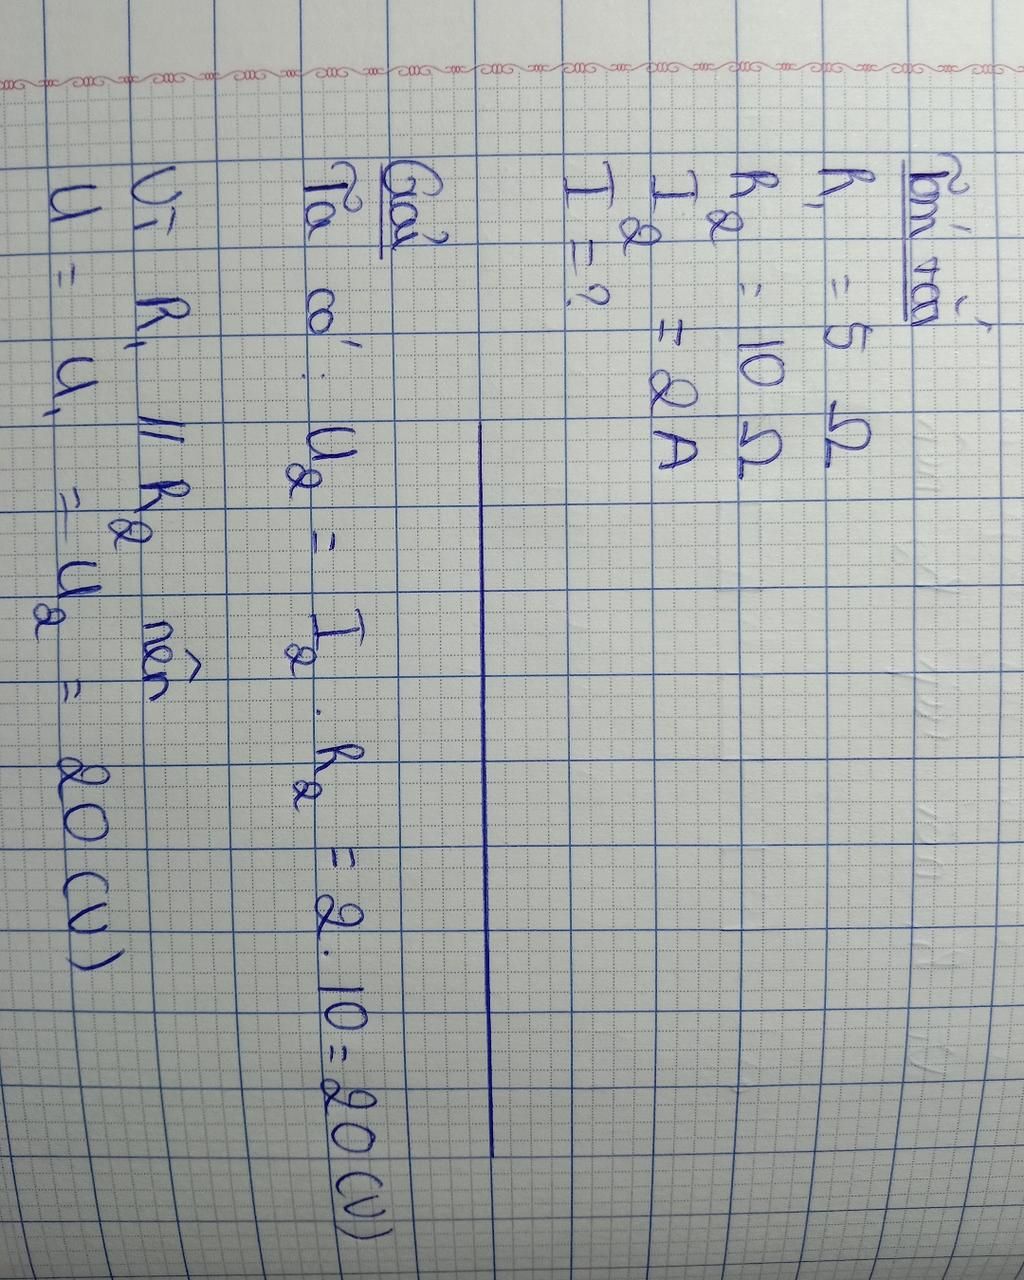 Tóm tắt
R₁ = 5 Ω
R₂ = 10 Ω
I₂ = 2A
I = ?
Giải
Ta có : U₂ = I₂ . R₂ = 2 . 10 = 20 (V)
Vì R₁ // R₂ nên
U = U₁ = U₂ = 20 (V)